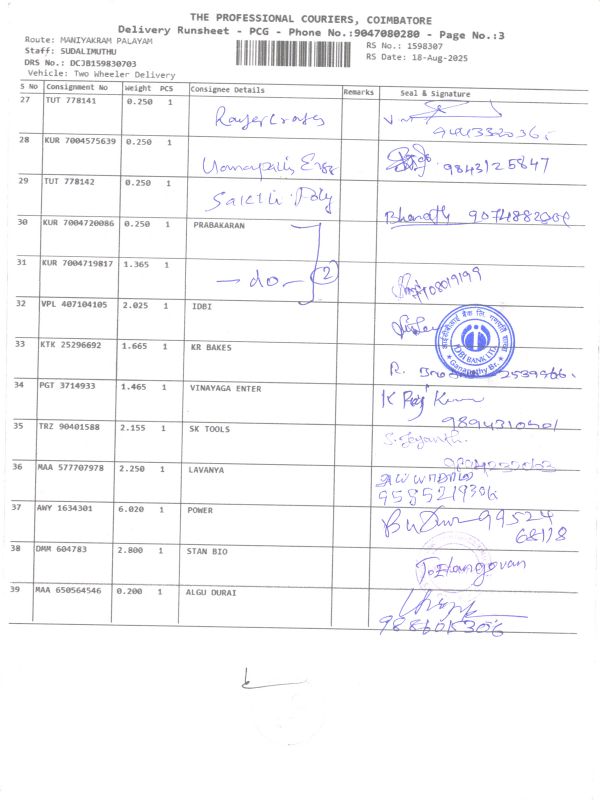 THE PROFESSIONAL COURIERS, COIMBATORE
Delivery Runsheet - PCG - Phone No.:9047080280 - Page No.:3
Route: MANIYAKRAM PALAYAM
RS No.: 1598307
Staff: SUDALIMUTHU
RS Date: 18-Aug-2025
DRS No.: DCJB159830703
Vehicle: Two Wheeler Delivery
S No Consignment No Weight PCS Consignee Details Remarks Seal & Signature
27 TUT 778141 0.250 1
28 KUR 7004575639 0.250 1 9843125847
29 TUT 778142 0.250 1 Sakthi Poly Bharath
30 KUR 7004720086 0.250 1 PRABAKARAN
31 KUR 7004719817 1.365 1 - do - 2
32 VPL 407104105 2.025 1 IDBI
IDBI BANK LTD.
Ganapathy Br.
33 KTK 25296692 1.665 1 KR BAKES R.
34 PGT 3714933 1.465 1 VINAYAGA ENTER K Raj Kumar
9894310501
35 TRZ 90401588 2.155 1 SK TOOLS S. Jeyanth
36 MAA 577707978 2.250 1 LAVANYA
9585219306
37 AWY 1634301 6.020 1 POWER 99524
68118
38 DMM 604783 2.800 1 STAN BIO T. Elangovan
39 MAA 650564546 0.200 1 ALGU DURAI